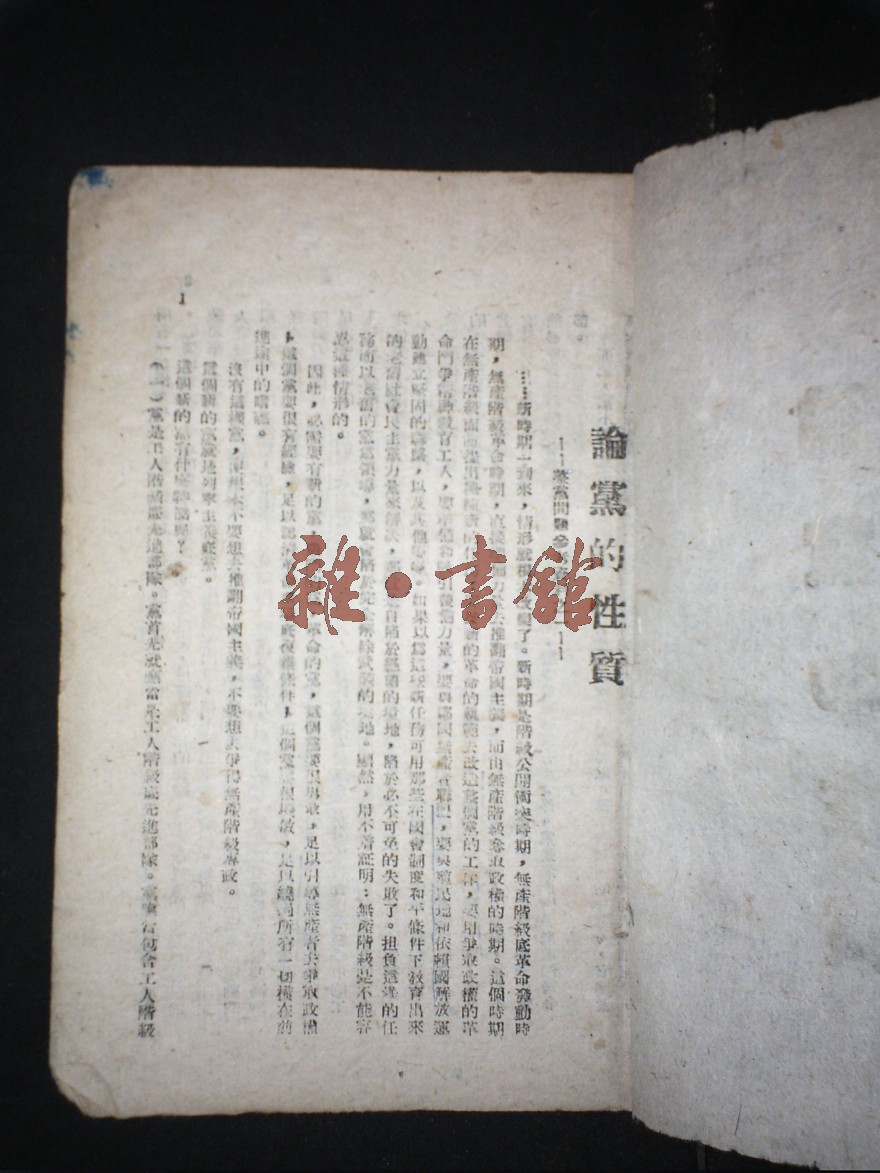 論黨的性質
……新時期一到來,情形就根本改變了。新時期是階級公開衝突時期,無產階級底革命發動時
期,無產階級革命時期,直接去推翻帝國主義,而由無產階級奪取政權的時期。這個時期
在無產階級面前提出新的革命的去改造全黨的工作,要用爭取政權的革
命鬥爭精神教育工人,要力量,要與鄰國無產者聯盟,要與殖民地和依賴國解放運
動建立堅固的聯繫,以及其他等等。如果以為這些新任務可用那些在國會制度和平條件下教育出來
的老的社會民主黨力量來解決,自陷於絕望的境地,陷於必不可免的失敗了。担負這樣的任
務而以老舊的黨為領導,武裝的境地。顯然,用不着証明:無產階級是不能容
忍這種情形的。
因此,必需要有新的黨,革命的黨,這個黨要很勇敢,足以引導無產者去爭取政權
,這個黨要很有經驗,足以認清複雜條件,這個黨要很足以繞過所有一切橫在前
進途中的暗礁。
沒有這樣黨,就根本不要想去推翻帝國主義,不要想去爭得無產階級專政。
這個新的黨就是列寧主義底黨。
這個新的黨有什麼特點呢?
(一)黨是工人階級底先進部隊。黨首先就應當是工人階級底先進部隊。黨應當包含工人階級
1
雜·書館